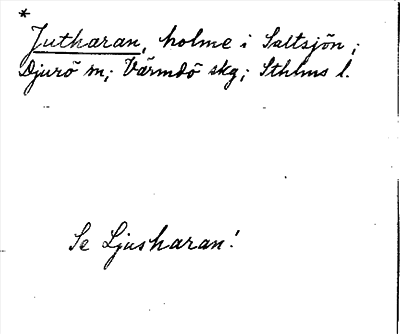 *
Jutharan, holme i Saltsjön;
Djurö sn; Värmdö skg; Sthlms l.
Se Ljusharan!